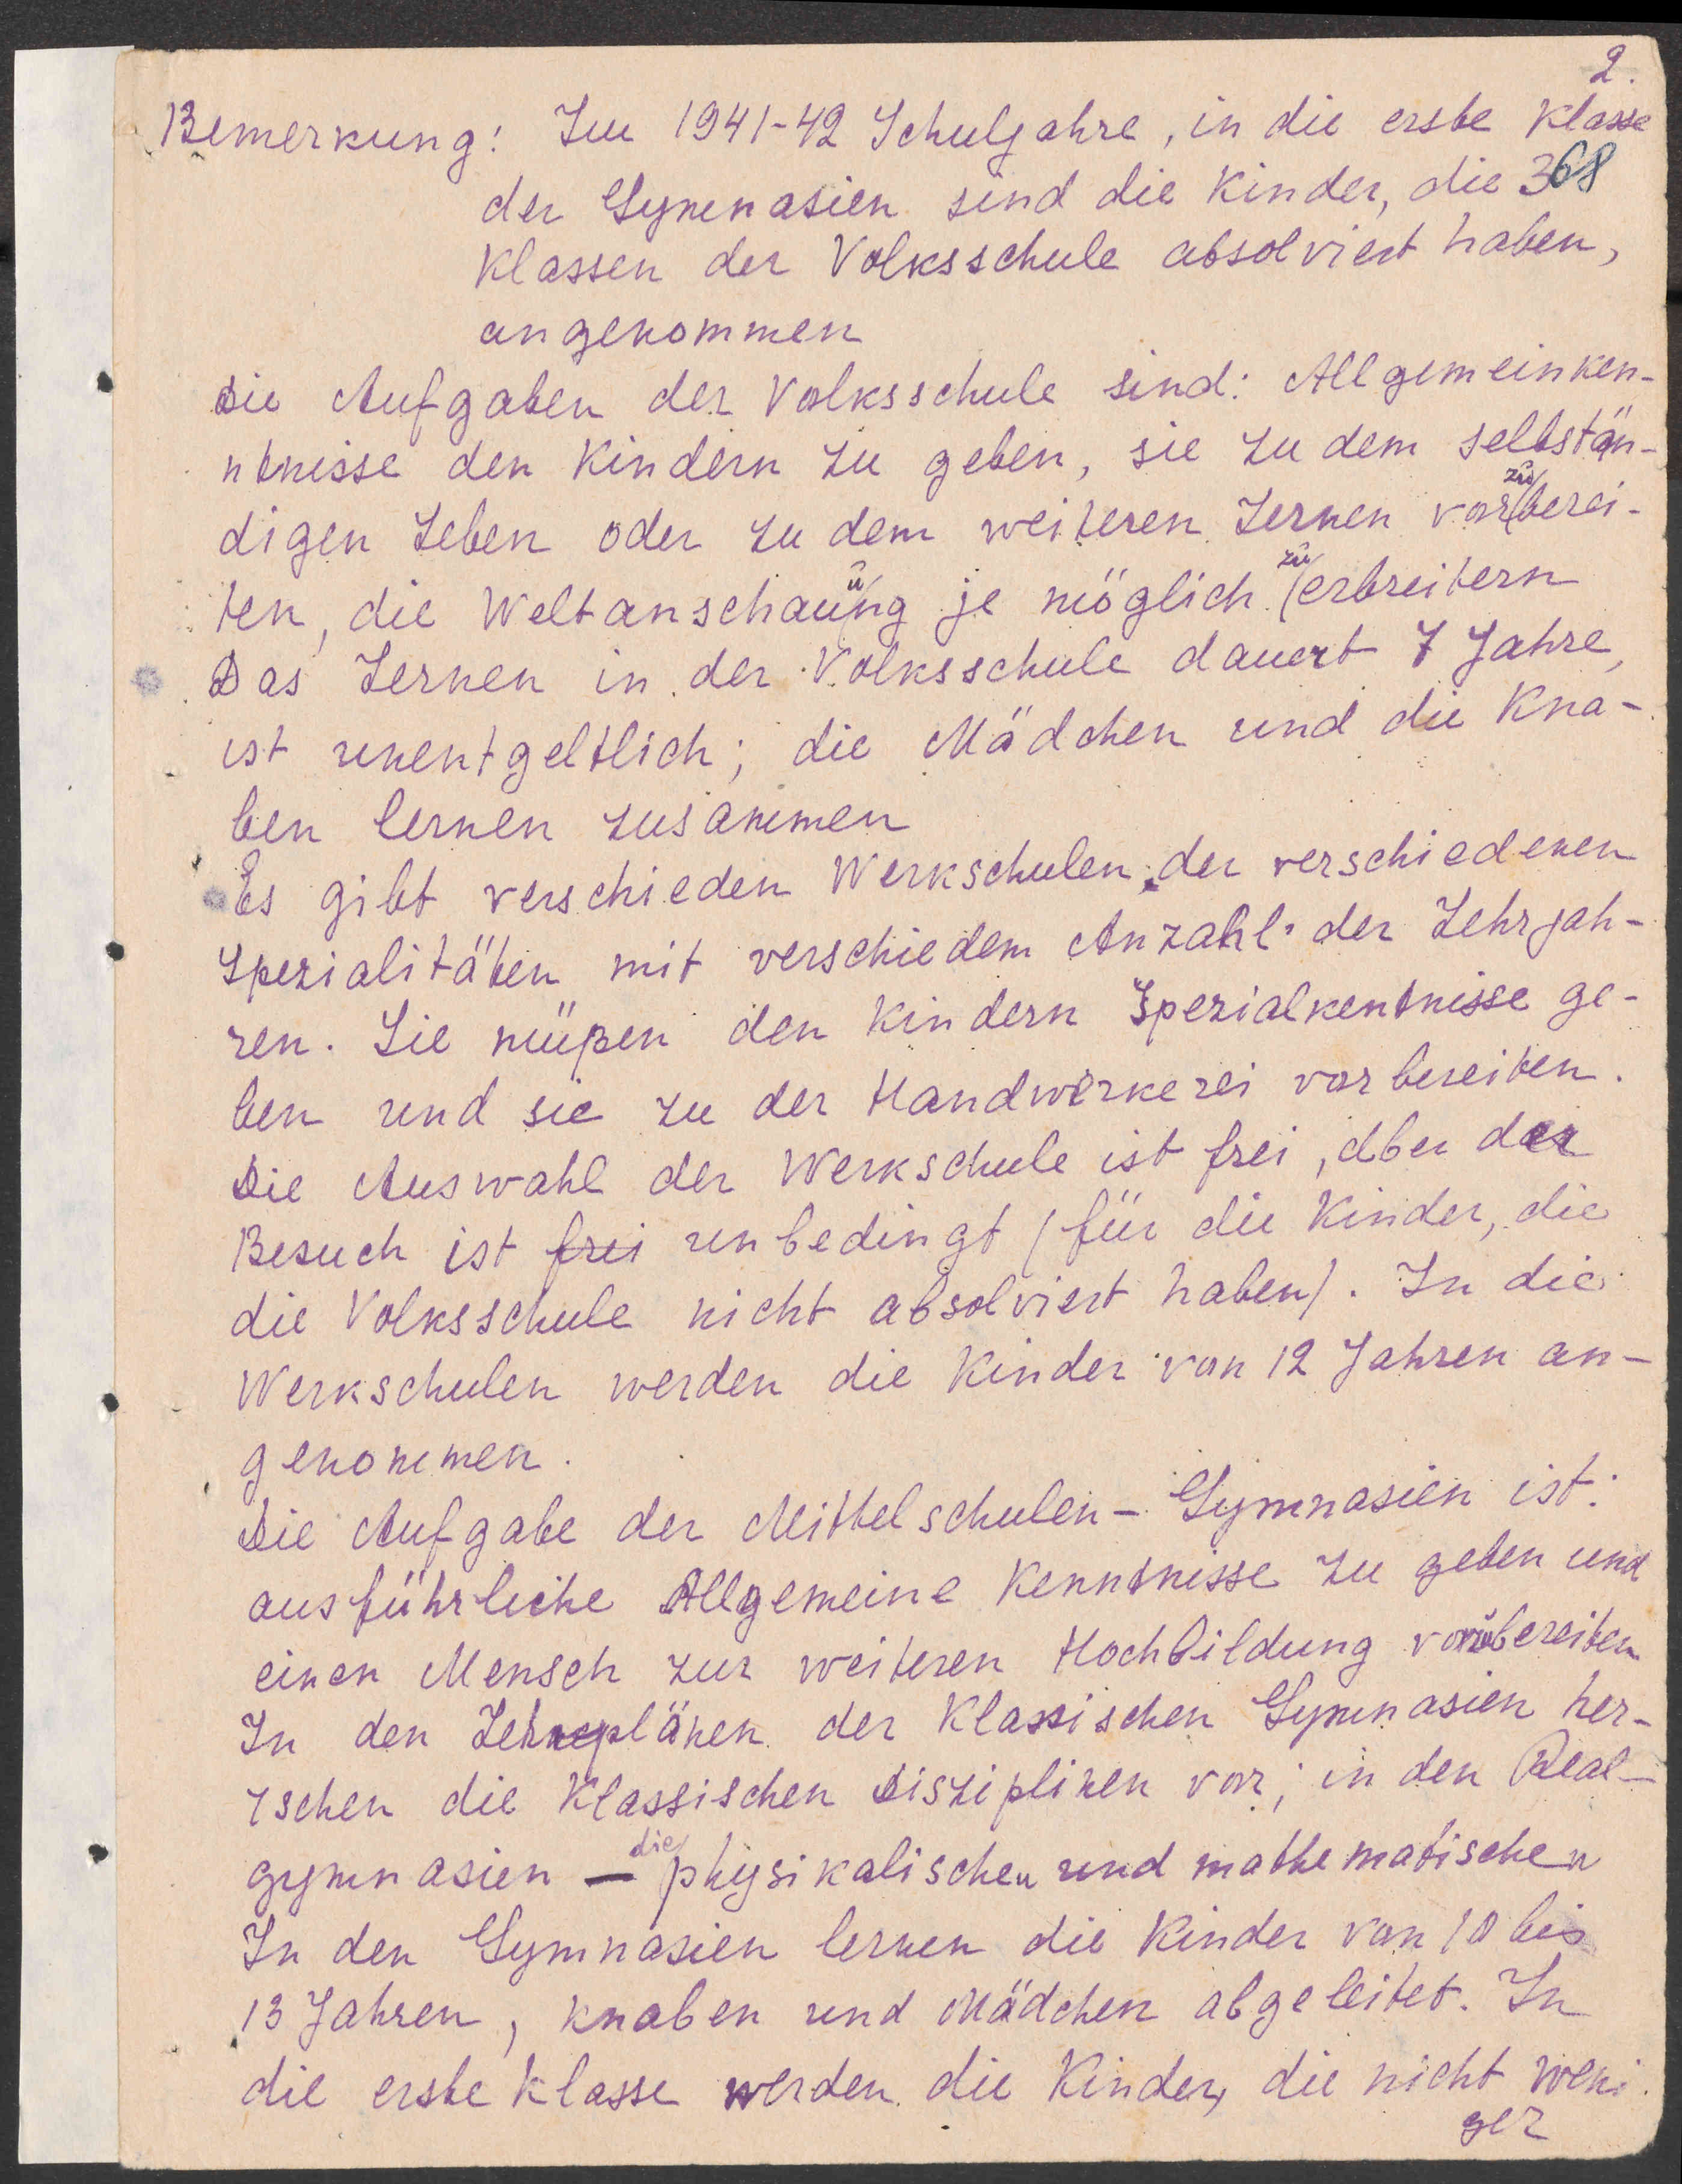 2.
Bemerkung: Im 1941-42 Schuljahre, in die erste Klasse
der Gymnasien sind die Kinder, die 3
68
Klassen der Volksschule absolviert haben,
angenommen
Die Aufgaben der Volksschule sind: Allgemeinken-
ntnisse den Kindern zu geben, sie zu dem selbstän-
digen Leben oder zu dem weiteren Lernen vorzuberei-
ten, die Weltanschauung je möglich zu erbreitern
Das Lernen in der Volksschule dauert 7 Jahre,
ist unentgeltlich; die Mädchen und die Kna-
ben lernen zusammen
Es gibt verschieden Werkschulen, der verschiedenen
Spezialitäten mit verschiedem Anzahl der Lehrjah-
ren. Sie müßen den Kindern Spezialkentnisse ge-
ben und sie zu der Handwerkerei vorbereiten.
Die Auswahl der Werkschule ist frei, aber der
Besuch ist frei unbedingt (für die Kinder, die
die Volksschule nicht absolviert haben). In die
Werkschulen werden die Kinder von 12 Jahren an-
genommen.
Die Aufgabe der Mittelschulen - Gymnasien ist:
ausführliche Allgemeine Kenntnisse zu geben und
einen Mensch zur weiteren Hochbildung vorzubereiten
In den Lehrplänen der Klassischen Gymnasien her-
rschen die Klassischen Disziplinen vor; in den Real-
gymnasien — die physikalischen und mathematischen
In den Gymnasien lernen die Kinder von 10 bis
13 Jahren, Knaben und Mädchen abgeleitet. In
die erste Klasse werden die Kinder, die nicht weni-
ger